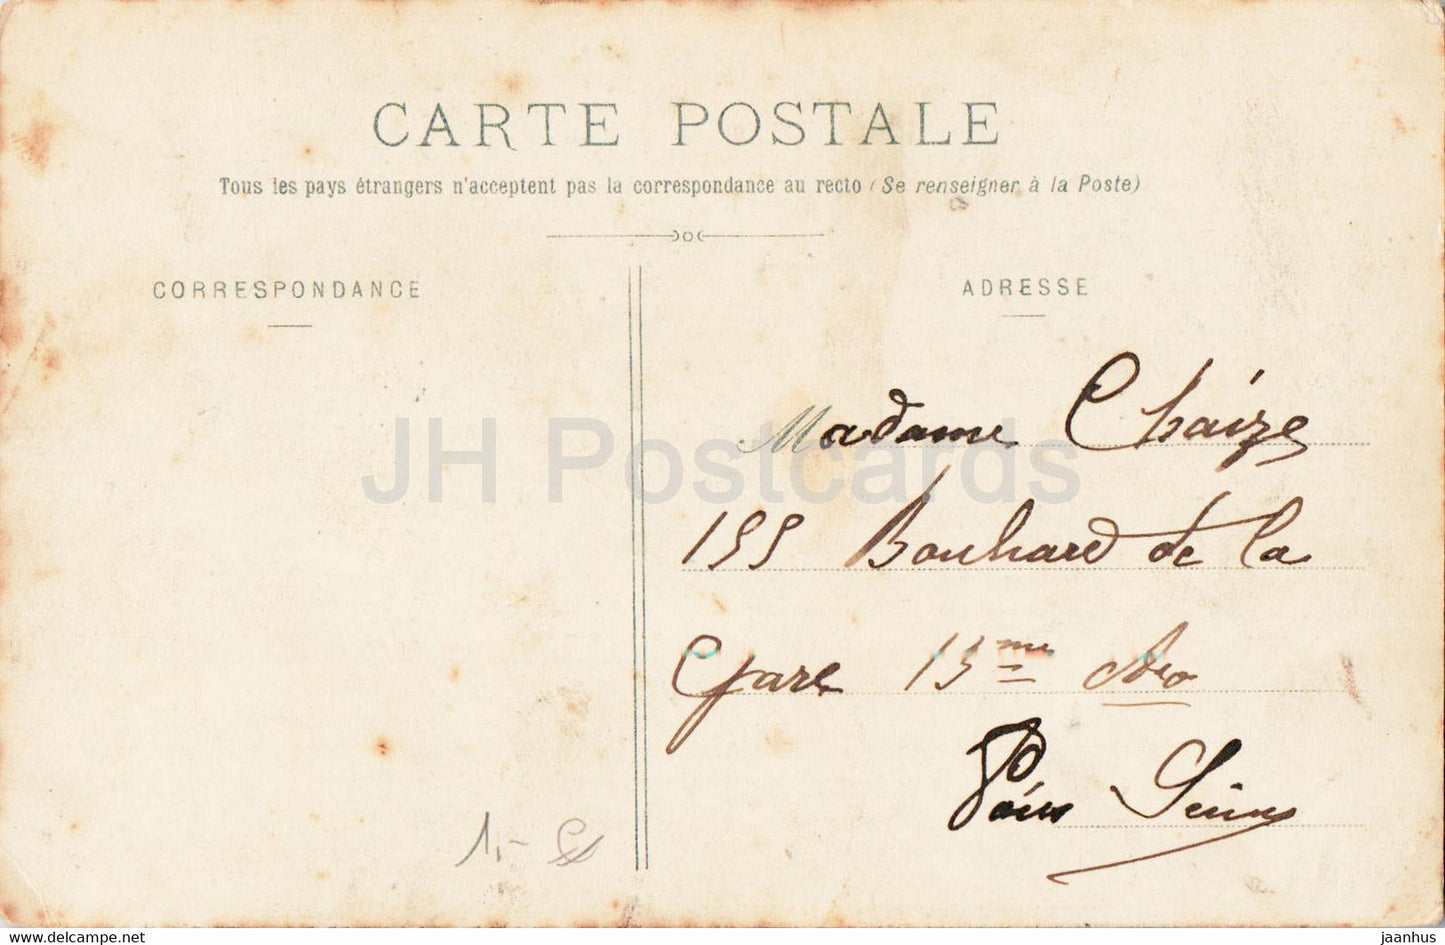 CARTE POSTALE
Tous les pays étrangers n'acceptent pas la correspondance au recto (Se renseigner à la Poste)
CORRESPONDANCE
ADRESSE
Madame Chaize
155 Boulhard de la
Gare 13me Aro
Paris Seine
1,-
JH Postcards
www.jhpostcard.com
jaanhus